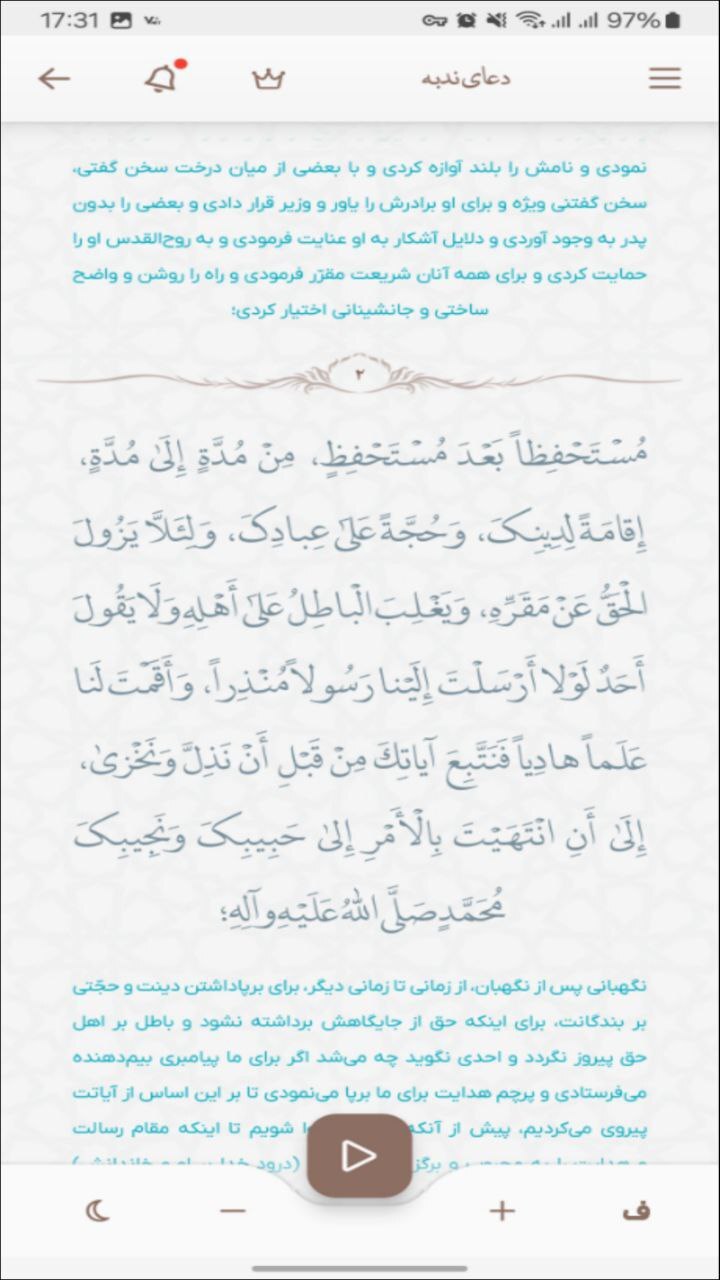 17:31
97%
دعای ندبه
نمودی و نامش را بلند آوازه کردی و با بعضی از میان درخت سخن گفتی،
سخن گفتنی ویژه و برای او برادرش را یاور و وزیر قرار دادی و بعضی را بدون
پدر به وجود آوردی و دلایل آشکار به او عنایت فرمودی و به روح‌القدس او را
حمایت کردی و برای همه آنان شریعت مقرّر فرمودی و راه را روشن و واضح
ساختی و جانشینانی اختیار کردی؛
۲
مُسْتَحْفِظاً بَعْدَ مُسْتَحْفِظٍ، مِنْ مُدَّةٍ إِلَىٰ مُدَّةٍ،
إِقامَةً لِدِینِکَ، وَحُجَّةً عَلَىٰ عِبادِکَ، وَلِئَلَّا یَزُولَ
الْحَقُّ عَنْ مَقَرِّهِ، وَیَغْلِبَ الْباطِلُ عَلَىٰ أَهْلِهِ وَلَا یَقُولَ
أَحَدٌ لَوْلا أَرْسَلْتَ إِلَیْنا رَسُولاً مُنْذِراً، وَأَقَمْتَ لَنا
عَلَماً هادِیاً فَنَتَّبِعَ آیاتِكَ مِنْ قَبْلِ أَنْ نَذِلَّ وَنَخْزىٰ،
إِلَىٰ أَنِ انْتَهَیْتَ بِالْأَمْرِ إِلىٰ حَبِیبِکَ وَنَجِیبِکَ
مُحَمَّدٍ صَلَّى اللّٰهُ عَلَیْهِ وَآلِهِ؛
نگهبانی پس از نگهبان، از زمانی تا زمانی دیگر، برای برپاداشتن دینت و حجّتی
بر بندگانت، برای اینکه حق از جایگاهش برداشته نشود و باطل بر اهل
حق پیروز نگردد و احدی نگوید چه می‌شد اگر برای ما پیامبری بیم‌دهنده
می‌فرستادی و پرچم هدایت برای ما برپا می‌نمودی تا بر این اساس از آیاتت
پیروی می‌کردیم، پیش از آنکه شویم تا اینکه مقام رسالت
ف